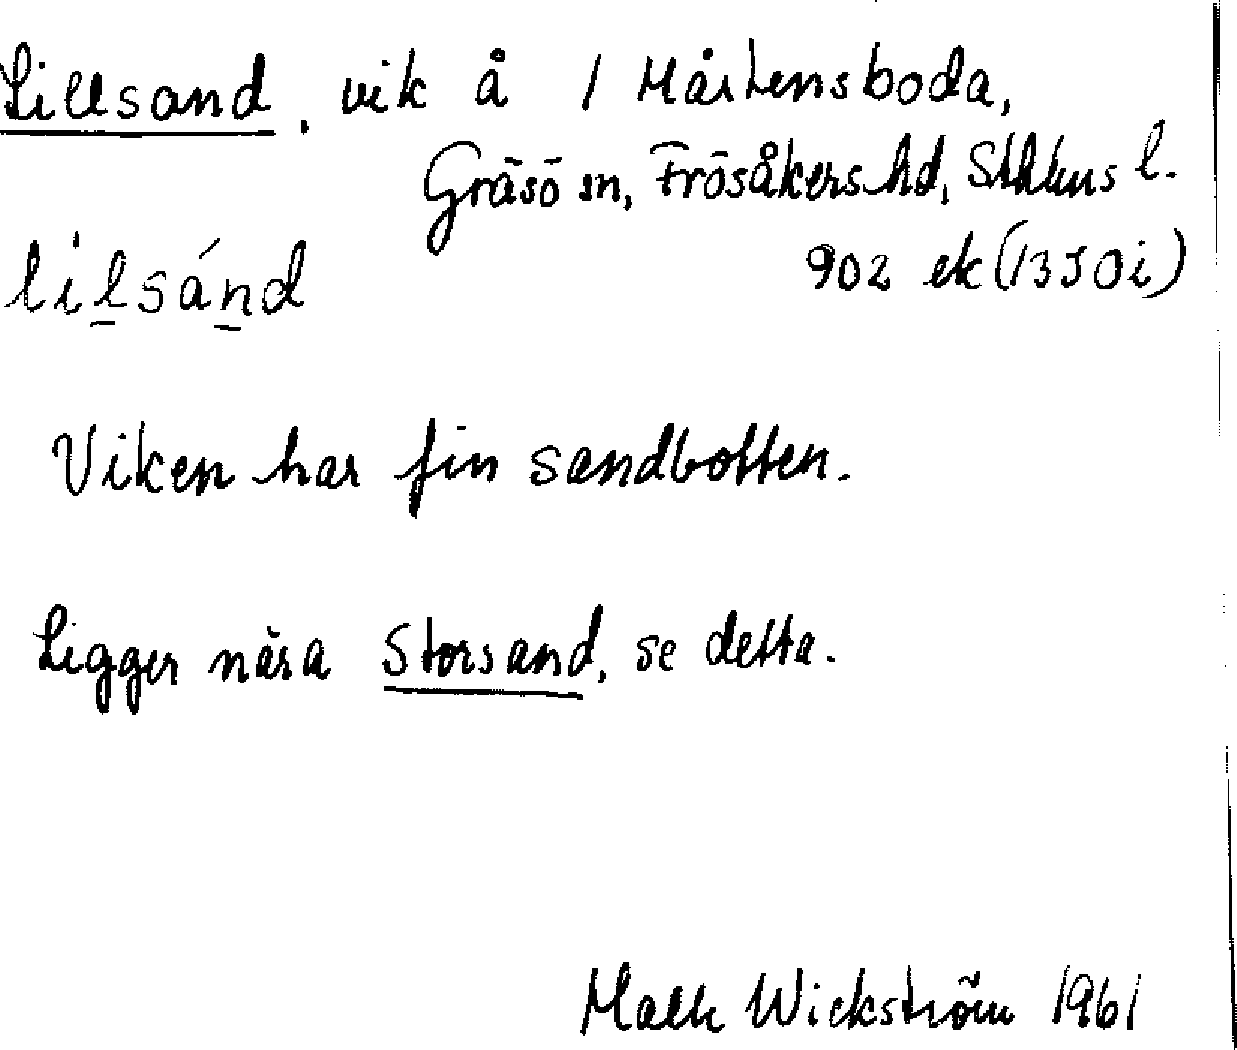 Lillsand, vik å 1 Mårtensboda,
Gräsö sn, Frösåkers hd, Sthlms l.
902 ek (13 J 0 i)
lilsánd
Viken har fin sandbotten.
Ligger nära Storsand, se detta.
Wickström 1961